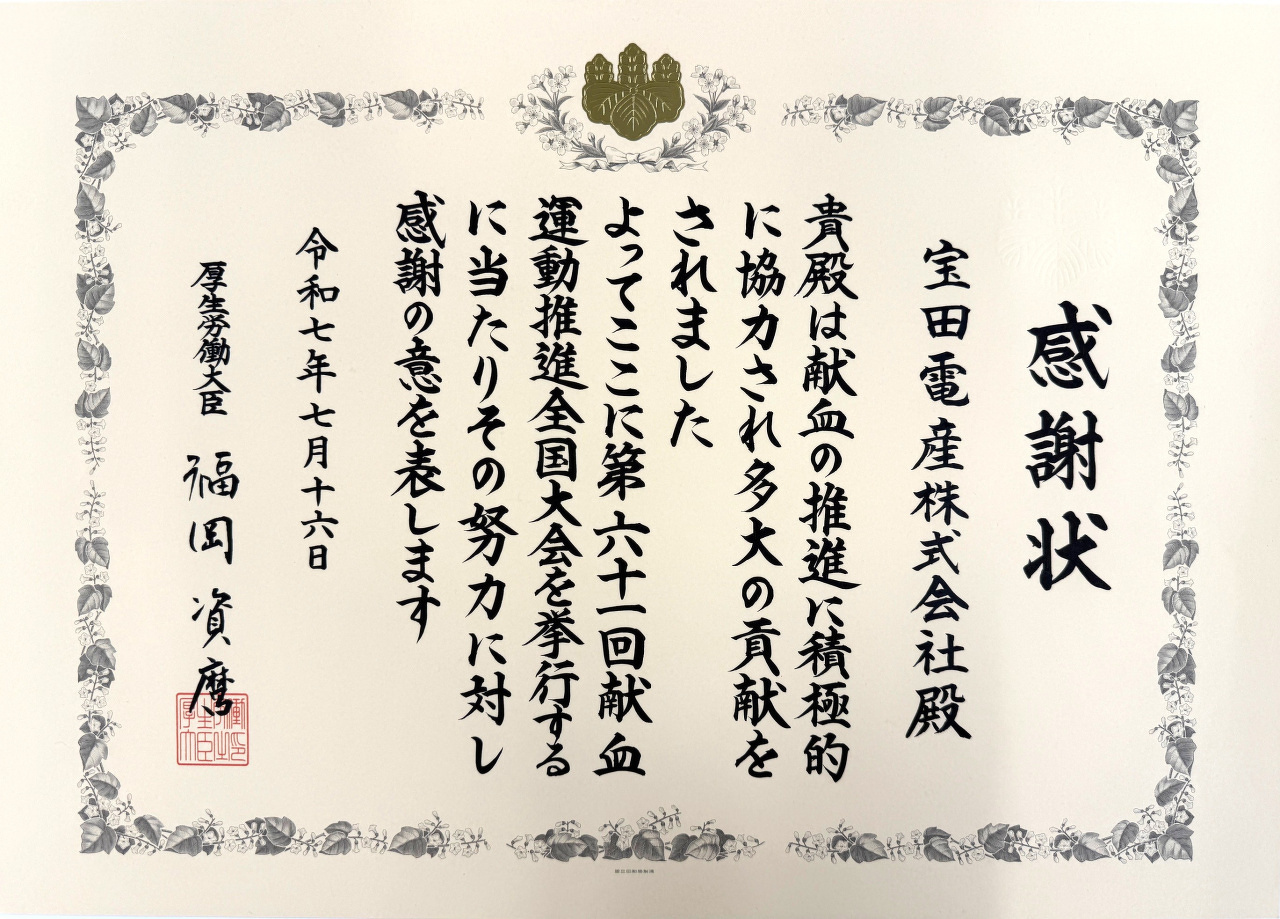 感謝状
宝田電産株式会社殿
貴殿は献血の推進に積極的
に協力され多大の貢献を
されました
よってここに第六十一回献血
運動推進全国大会を挙行する
に当たりその努力に対し
感謝の意を表します
令和七年七月十六日
厚生労働大臣 福岡資麿